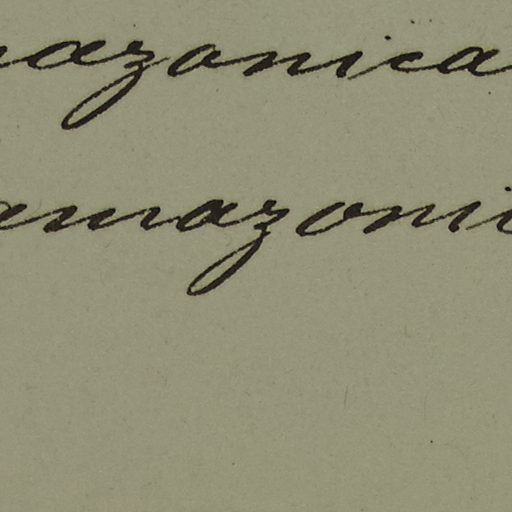 mazonica
amazonic